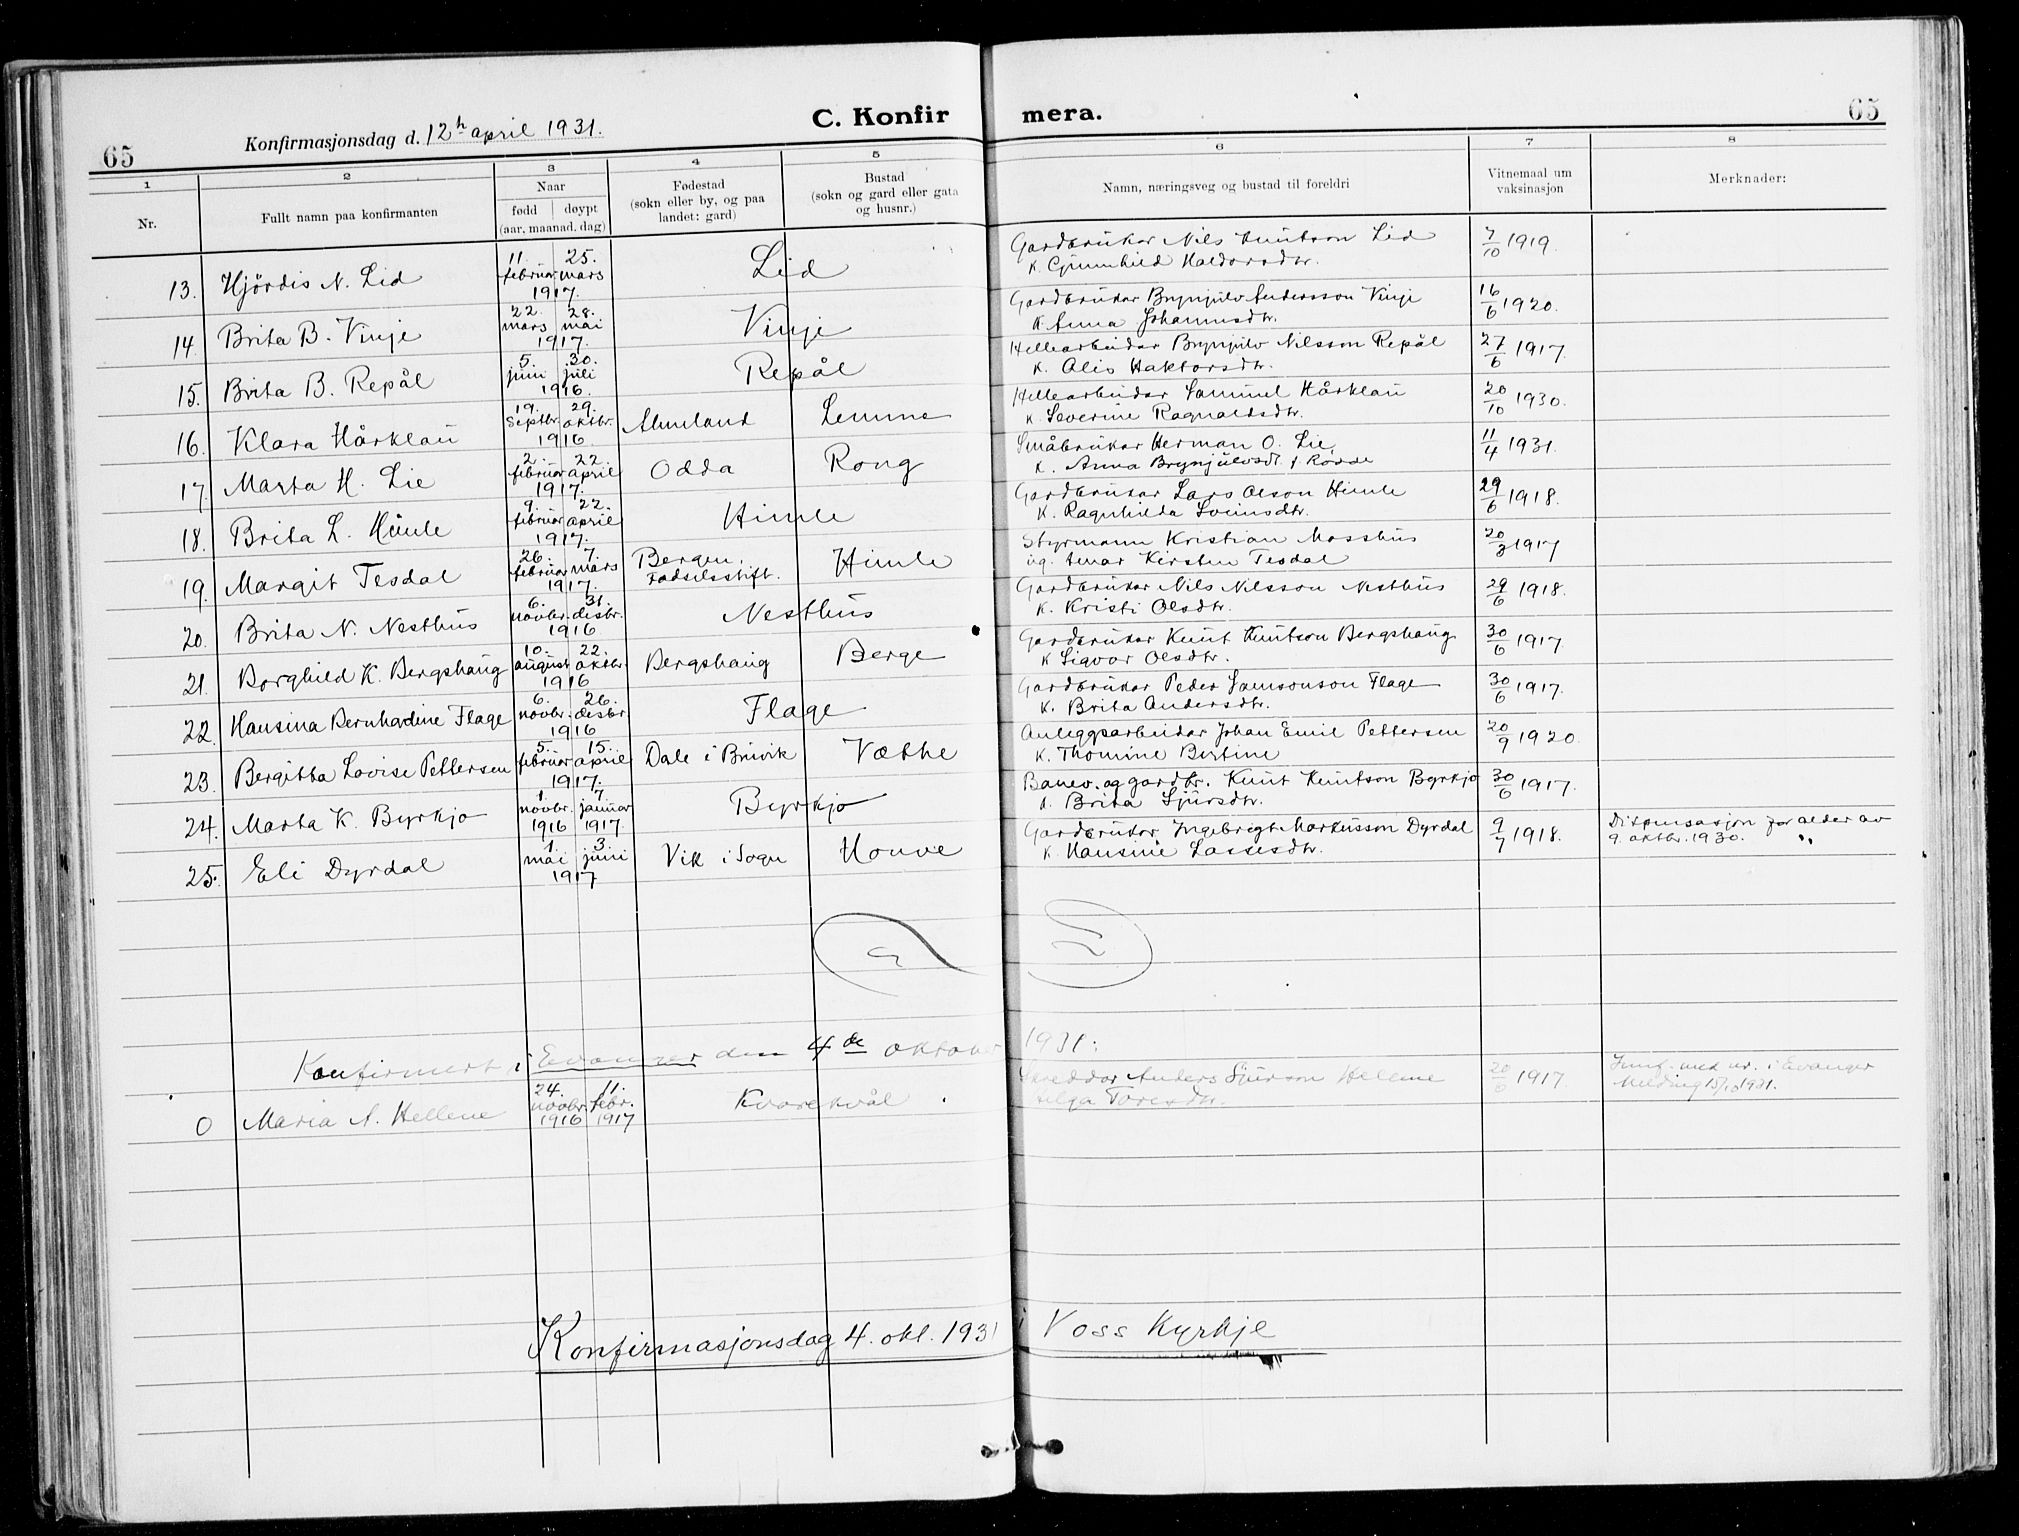 65
Konfirmasjonsdag d. 12h april 1931.
C. Konfir mera.
65
1 2 3 4 5 6 7 8
Nr.
Fullt namn paa konfirmanten
Naar
fødd døypt
(aar. maanad. dag)
Fødestad
(sokn eller by, og paa
landet: gard)
Bustad
(sokn og gard eller gata
og husnr.)
Namn, næringsveg og bustad til foreldri
Vitnemaal um
vaksinasjon
Merknader:
13. Hjördis N. Lid 11. februar 25. mars 1917. Lid Gardbrukar Nils Knutson Lid 7/10 1919.
k. Gunnhild Haldorsdtr.
14. Brita B. Vinje 22. mars 28. mai 1917. Vinje Gardbrukar Brynjulv Andersson Vinje 16/6 1920.
k. Anna Johannesdtr.
15. Brita B. Repål 5. juni 30. juli 1916. Repål Hellearbeidar Brynjulv Nilsson Repål 27/6 1917.
k. Alis Haktorsdtr.
16. Klara Hårklau 19. Septbr. 29. oktbr. 1916. Lemme Hellearbeidar Samuel Hårklau 20/10 1930.
k. Severine Ragnaldsdtr.
17. Marta H. Lie 2. februar 22. april 1917. Odda Rong Småbrukar Herman O. Lie 11/4 1931.
k. Anna Brynjulvsd.
18. Brita L. Himle 9. februar 22. april 1917. Himle Gardbrukar Lars Olson Himle 29/6 1918.
k. Ragnhilda Sveinsdtr.
19. Margit Tesdal 26. februar 7. mars 1917. Bergen, Fødselsstift. Himle Styrmann Kristian Mosshus 20/3 1917
ug. Kirsten Tesdal
20. Brita N. Nesthus 6. novbr. 31. desbr. 1916 Nesthus Gardbrukar Nils Nilsson Nesthus 29/6 1918.
k. Kristi Olsdtr.
21. Borghild K. Bergshaug 10. august 22. oktbr. 1916 Bergshaug Berge Gardbrukar Knut Knutson Bergshaug 30/6 1917.
k Sigvor Olsdtr.
22. Hansina Bernhardine Flage 6. novbr. 26. desbr. 1916 Flage Gardbrukar Peder Samsonson Flage 30/6 1917.
k. Brita Andersdtr.
23. Bergitta Lovise Pettersen 5. februar 15. april 1917. Dale i Bruvik Væthe Anleggsarbeidar Johan Emil Pettersen 20/9 1920.
k. Thomine Bertine
24. Marta K. Byrkjo 1. novbr. 1916 7. januar 1917. Byrkjo Banev. og gardbr. Knut Knutson Byrkjo 30/6 1917.
k. Brita Sjursdtr.
25. Eli Dyrdal 1. mai 3 juni 1917 Vik i Sogn Houve Gardbrukar Ingebregt Markusson Dyrdal 9/7 1918. Dispensasjon for alder av
k. Hansine Lassesdtr. 9. oktbr. 1930.
Konfirmert i Evanger den 4de oktober 1931:
0 Maria A. Hellene 24. novbr. 1916 11. febr. 1917 Kvarekvål Skreddar Anders Sjurson Helene 20/6 1917. i Evanger
Helga Toresdtr. Melding 15/10 1931.
Konfirmasjonsdag 4. okt. 1931 i Voss Kyrkje